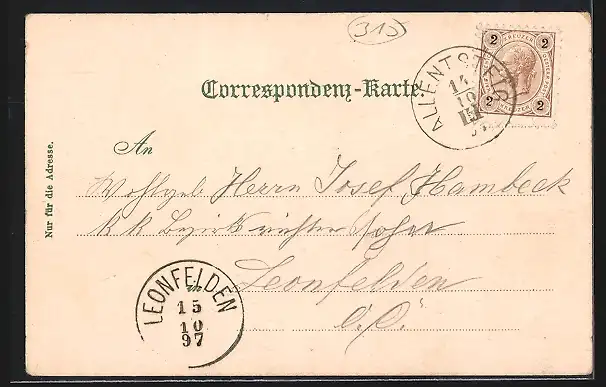 315
Correspondenz-Karte.
2 KREUZER 2
2 KREUZER 2
ALLENTSTEIG
14
10
An
Wohlgeb Herrn Josef Hambeck
k k Bezirksrichters Sohn
in Leonfelden
O. Ö.
Nur für die Adresse.
LEONFELDEN
15
10
97